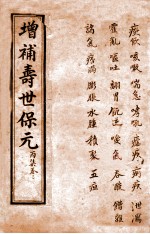 痰飲 咳嗽 喘急 哮吼 瘧疾 痢疾 泄瀉
霍亂 嘔吐 翻胃 呃逆 噯氣 吞酸 嘈雜
諸氣 痞滿 膨脹 水腫 積聚 五疸
增補壽世保元
丙集卷